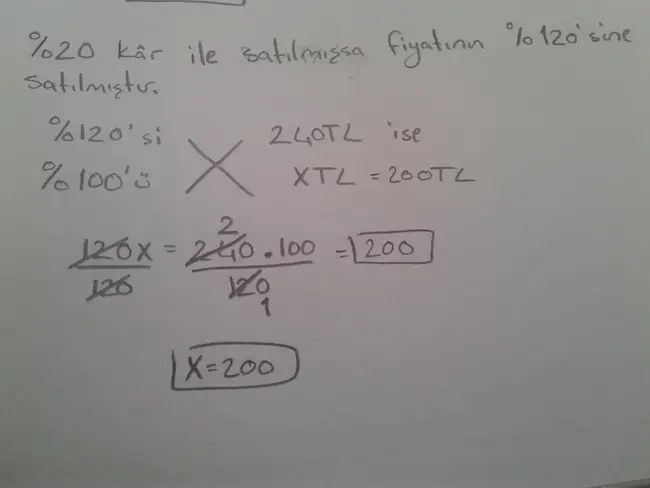 %20 kâr ile satılmışsa fiyatının %120'sine
satılmıştır.
%120'si 240TL ise
%100'ü XTL = 200TL
2
120x = 240.100 = 200
120 120
1
X=200